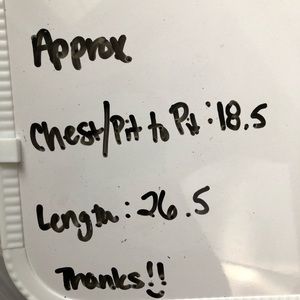 Approx
Chest/Pit to Pit: 18.5
Length: 26.5
Thanks!!